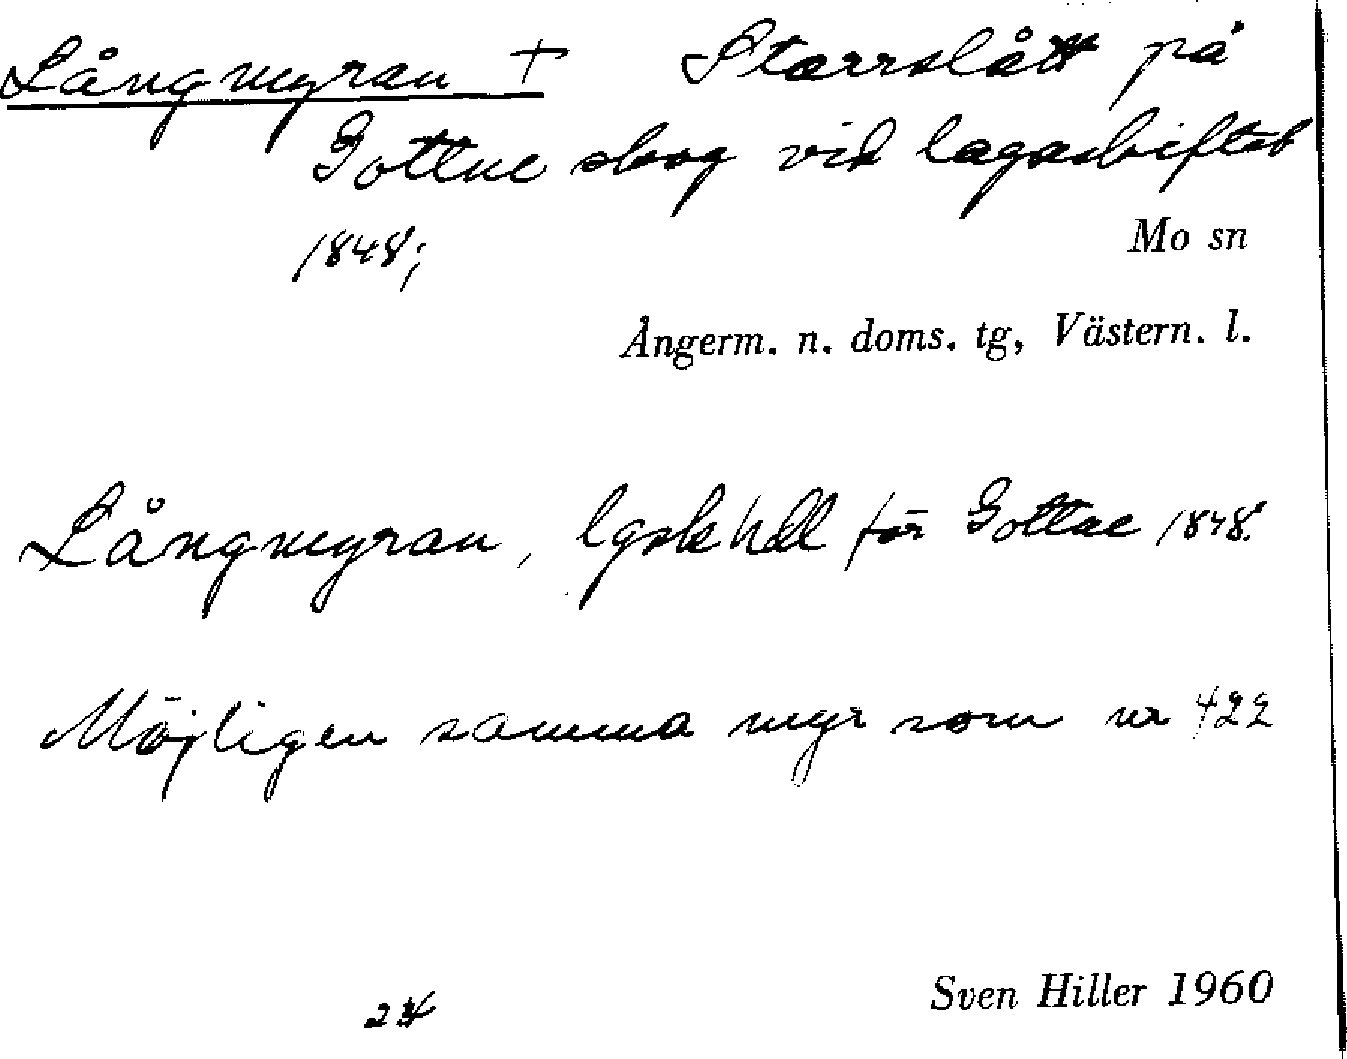 Långmyran † Starrslått på
Gottne skog vid lagaskiftet
1848;
Mo sn
Ångerm. n. doms. tg, Västern. l.
Långmyran, lgsk hdl för Gottne 1848.
Möjligen samma myr som nr 422
Sven Hiller 1960